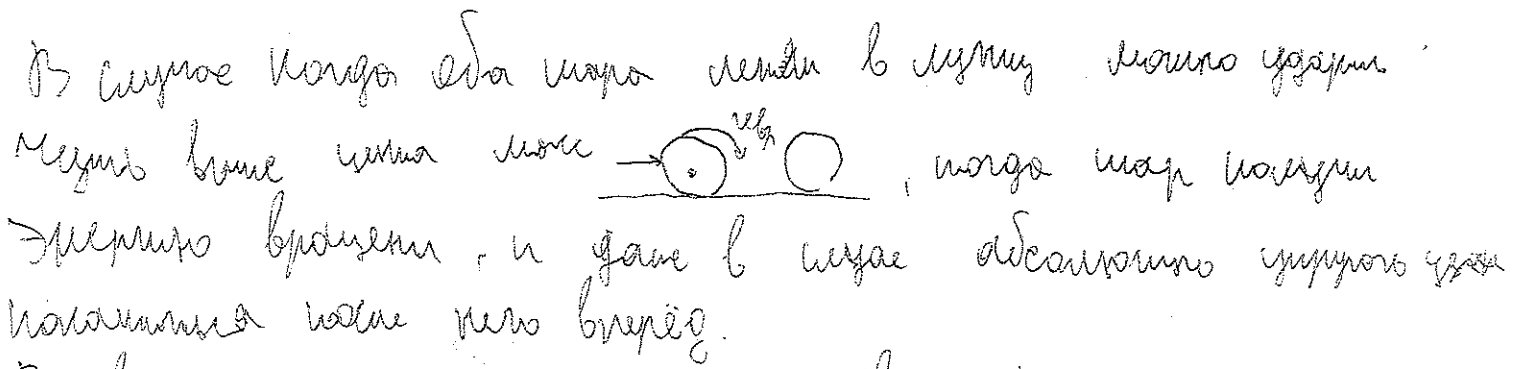 В случае когда оба шара летели в лунку можно ударить
чуть выше центра масс , тогда шар получит
энергию вращени , и даже в случае абсолютно упругого удара
покатиться после него вперёд.